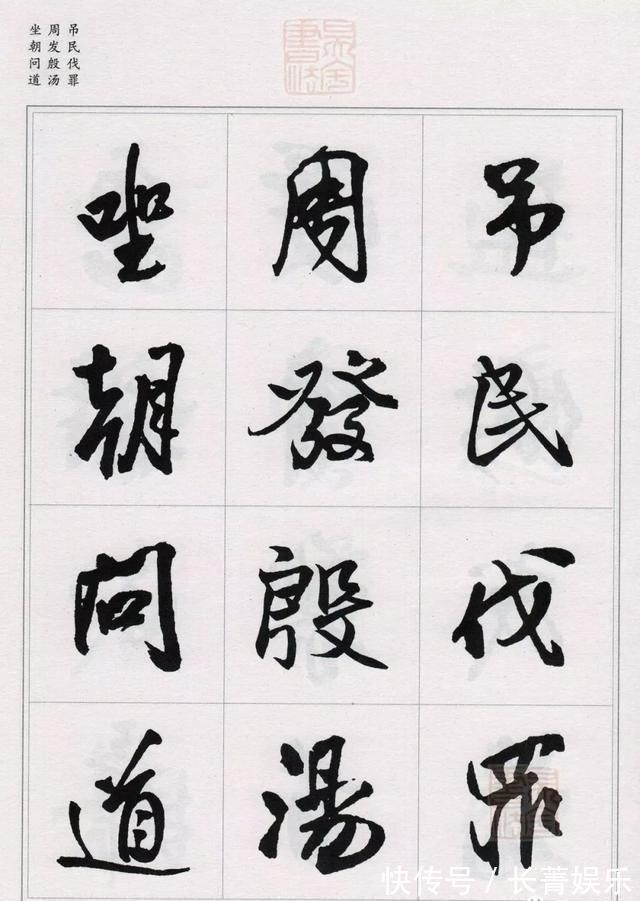 吊民伐罪
周发殷汤
坐朝问道
吊民伐罪
周發殷湯
坐朝問道
快传号／长菁娱乐